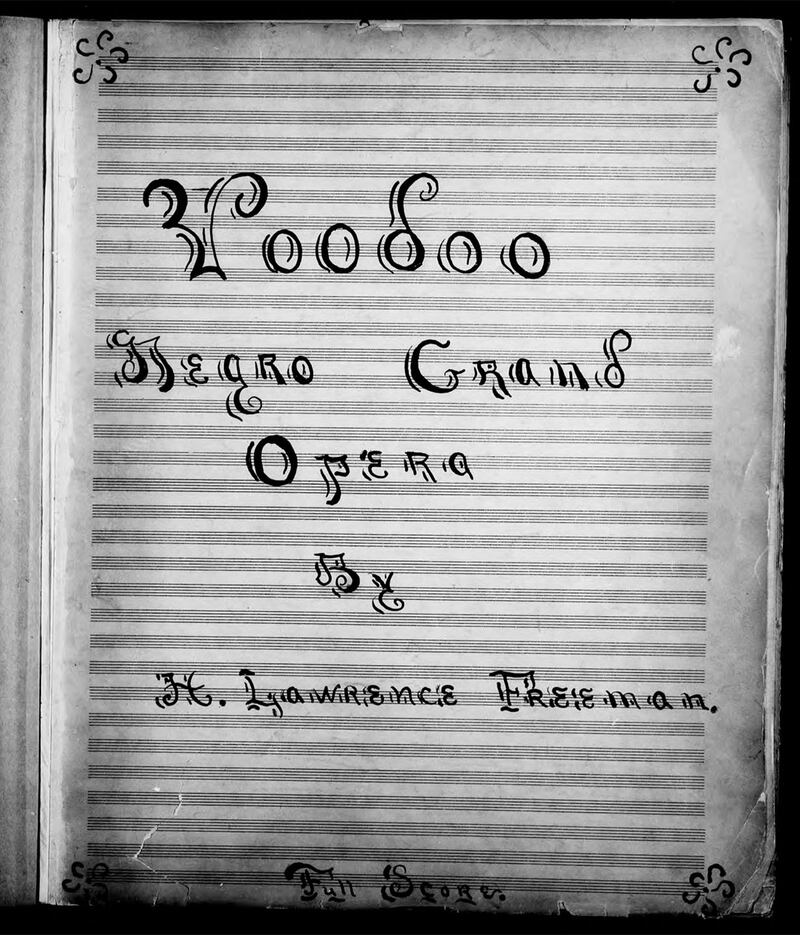 Voodoo
Negro Grand
Opera
By
H. Lawrence Freeman.
Full Score.